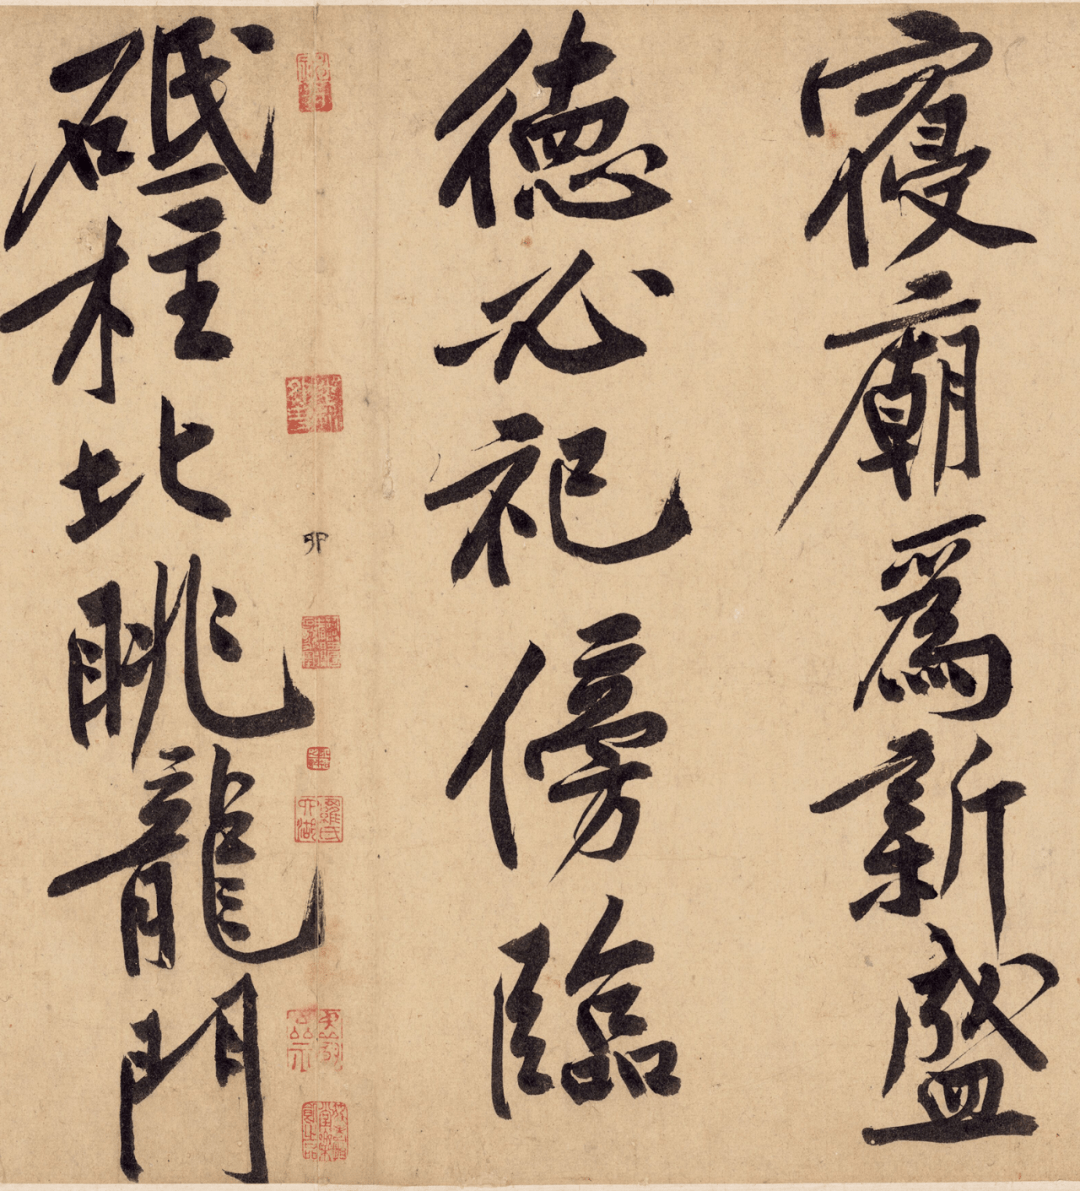 寑廟為新盛
德必祀傍臨
砥柱北眺龍門
卯